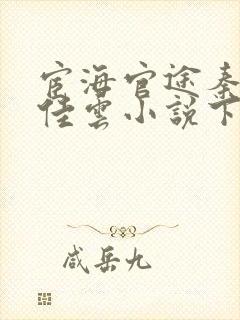 宦海官途秦
佳雲小說下
咸岳九